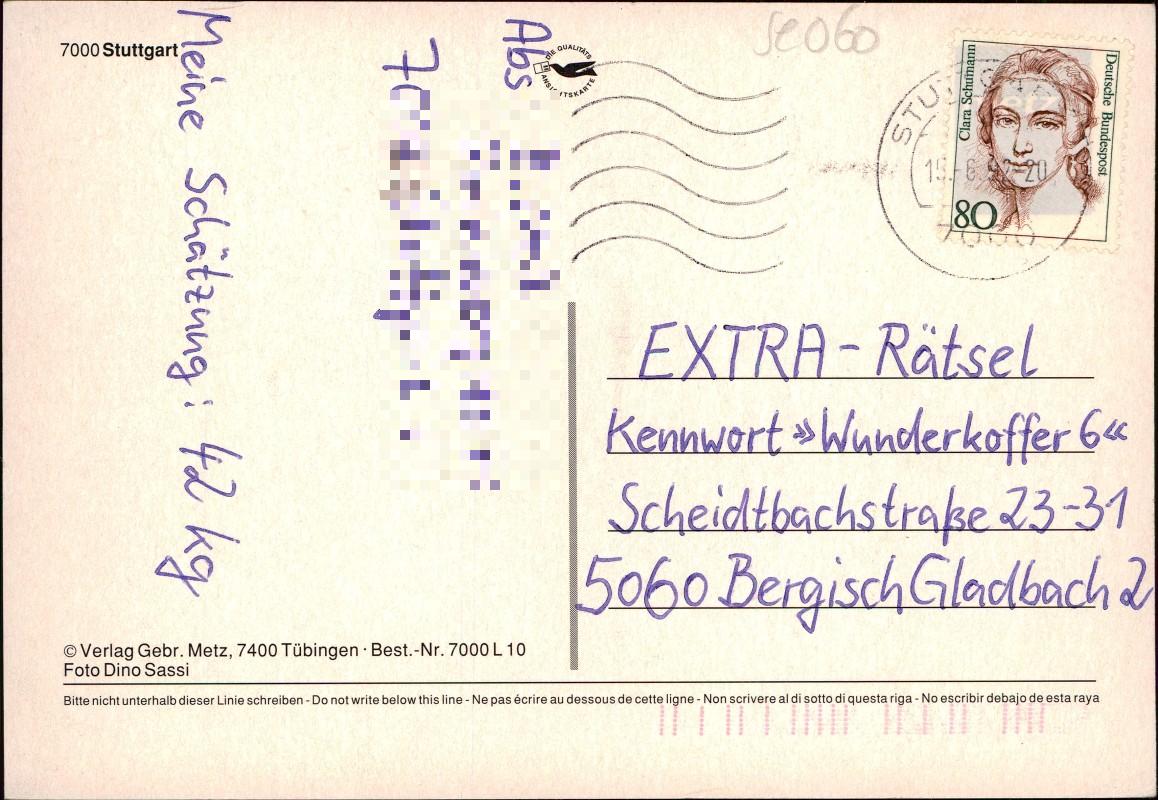 7000 Stuttgart
Meine Schätzung: 42 kg
Abs
DIE QUALITÄTS
Se060
Clara Schumann
Deutsche Bundespost
80
EXTRA-Rätsel
Kennwort »Wunderkoffer 6«
Scheidtbachstraße 23-31
5060 Bergisch Gladbach 2
© Verlag Gebr. Metz, 7400 Tübingen · Best.-Nr. 7000 L 10
Foto Dino Sassi
Bitte nicht unterhalb dieser Linie schreiben - Do not write below this line - Ne pas écrire au dessous de cette ligne - Non scrivere al di sotto di questa riga - No escribir debajo de esta raya